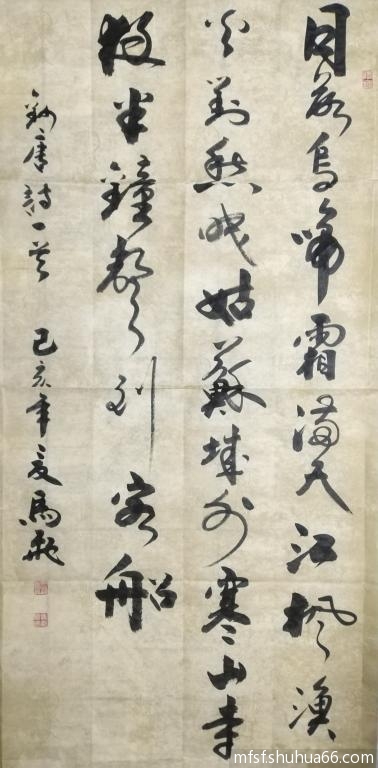 月落烏啼霜滿天江楓漁
火對愁眠姑蘇城外寒山寺
夜半鐘聲到客船
錄唐詩一首 己亥年夏馬飛
mfsfshuhua66.com